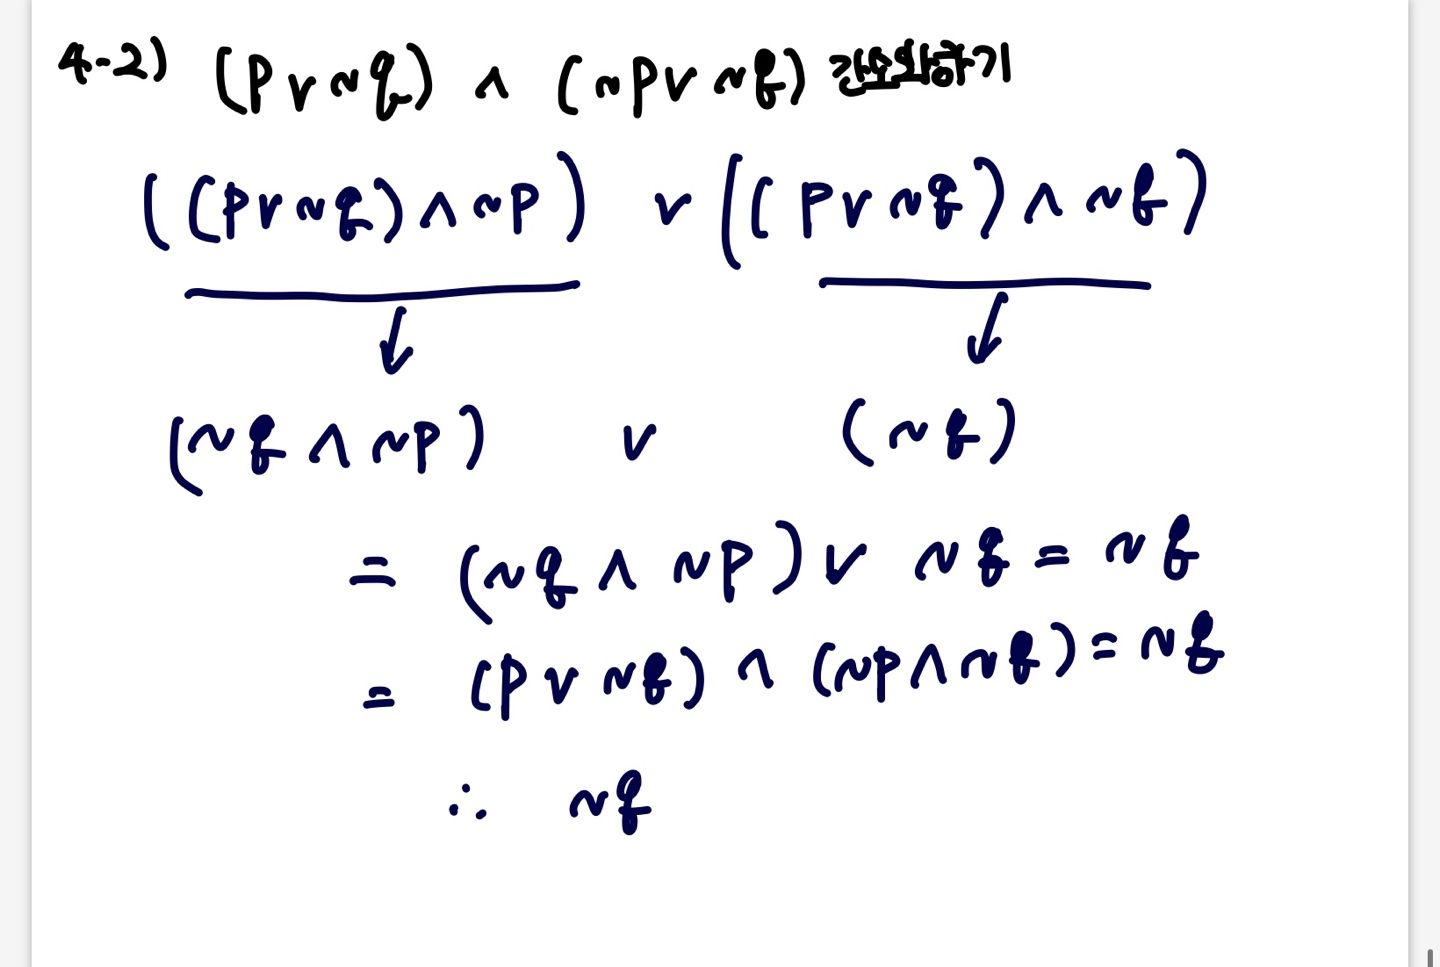 4-2) (p∨~q) ∧ (~p∨~q) 간소화하기
((p∨~q)∧~p) ∨ ((p∨~q)∧~q)
↓ ↓
(~q∧~p) ∨ (~q)
= (~q∧~p)∨ ~q = ~q
= (p∨~q) ∧ (~p∧~q) = ~q
∴ ~q